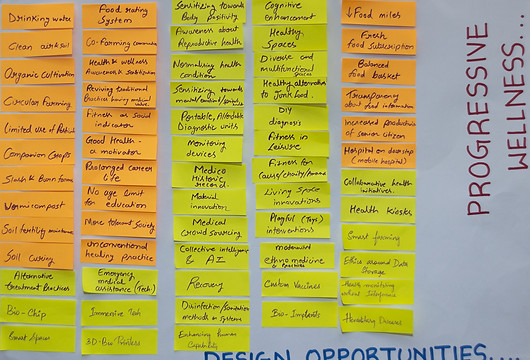 Drinking water
Clean air & soil
Organic Cultivation
Circular Farming
Limited use of
Companion Crops
Slash & Burn farms
Vermicompost
Soil fertility
Soil
Alternative
treatment Practices
Bio-Chip
Smart Spaces
Food rating
System
Co-Farming
Health & wellness
Awareness &
Reviving traditional
Practices having
Fitness as social
indicator
Good Health -
a motivator
Prolonged career
life
No age limit for
education
More tolerant Society
Unconventional
healing practice
Emergency
medical
assistance (Tech.)
Immersive Tech
3D-Bio Printers
Sensitizing towards
Body positivity
Awareness about
Reproductive health
Normalising health
condition
Sensitizing towards
Portable, Affordable
Diagnostic units
Monitoring
devices
Medico
Historic
record.
Material
innovation
Medical
Crowd sourcing
Collective intelligence
& AI
Recovery
Disinfection/
methods or systems
Enhancing Human
Capability
Cognitive
enhancement
Healthy
Spaces
Diverse and
multifunctional
spaces
Healthy alternatives
to Junk food.
DIY
diagnosis
Fitness in
Leisure
Fitness for
cause/charity/
Living Space
innovations
Playful (Toys)
interventions
ethnomedicine
& practices
Custom Vaccines
Bio-Implants
↓Food miles
Fresh
food Subscription
Balanced
food basket
Transparency
about food information
Increased productive
of senior citizen
Hospital on doorstep
(mobile hospital)
Collaborative health
initiatives.
Health Kiosks
Smart farming
Ethics around Data
Storage
Health monitoring
Hereditary Diseases
PROGRESSIVE
WELLNESS....
DESIGN OPPORTUNITIES....